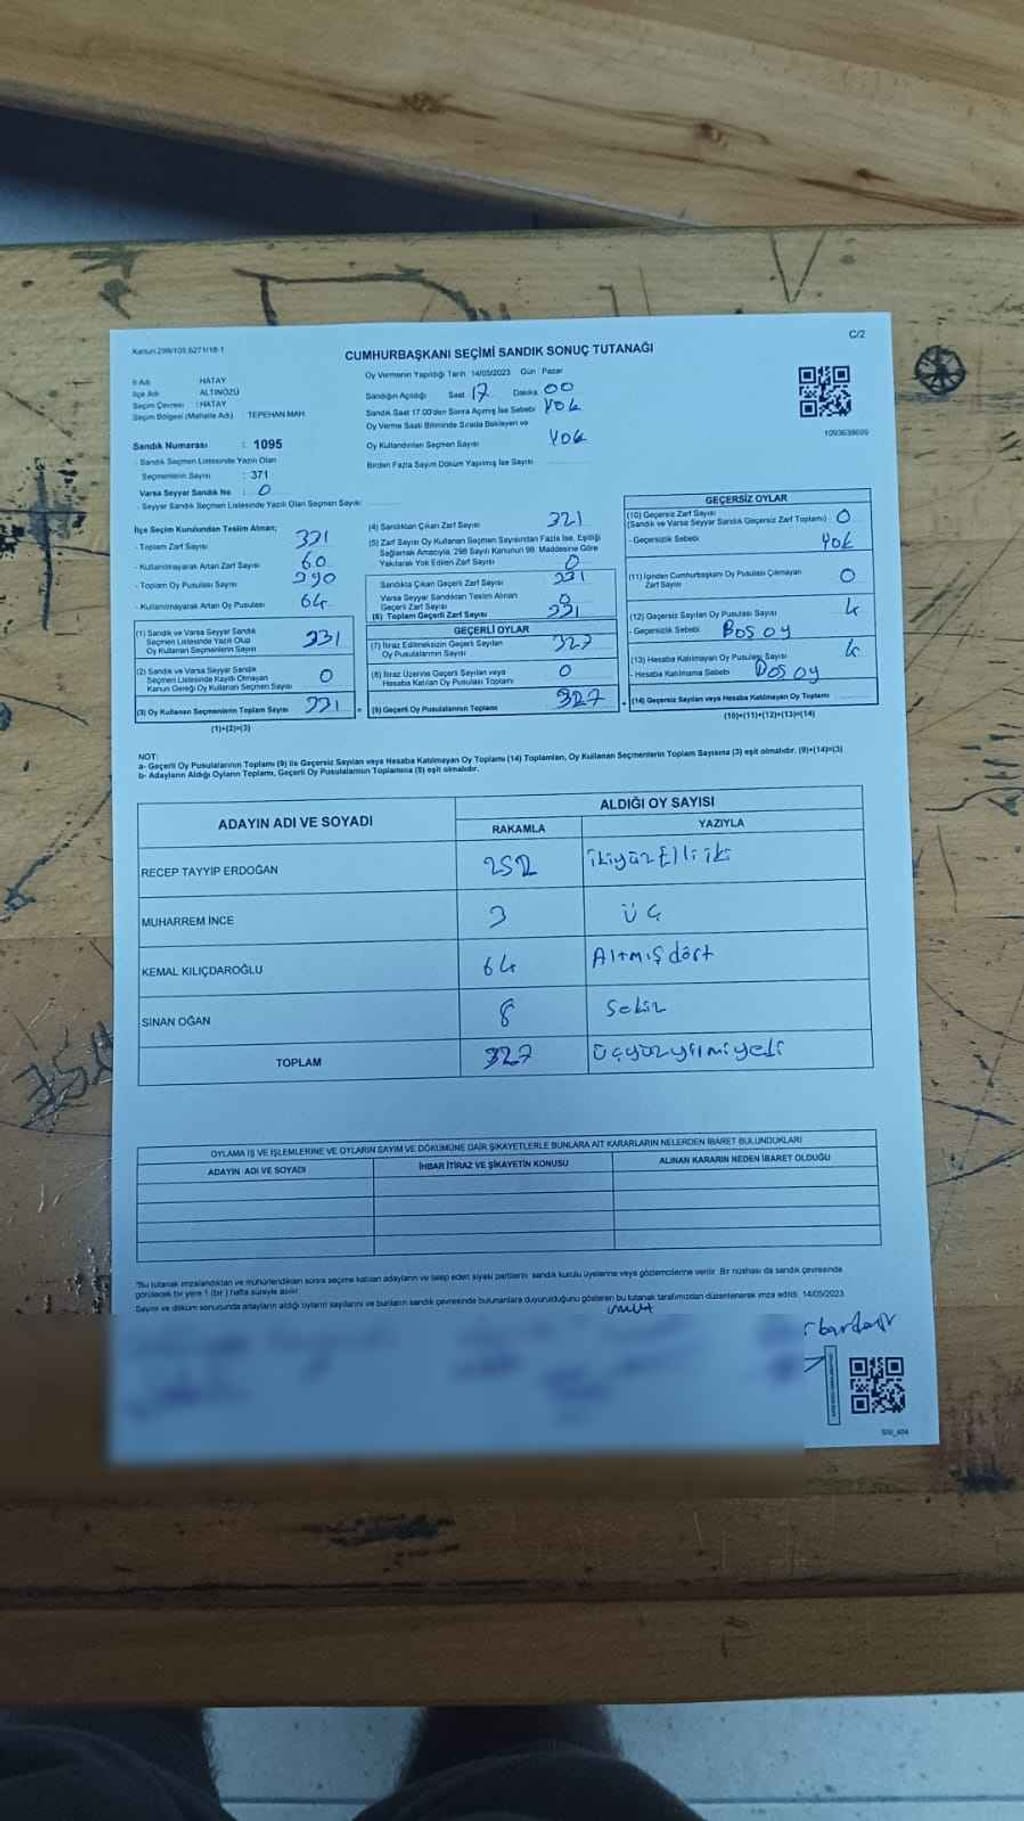 Kanun:298/105,6271/18-1
C/2
CUMHURBAŞKANI SEÇİMİ SANDIK SONUÇ TUTANAĞI
İl Adı : HATAY
İlçe Adı : ALTINÖZÜ
Seçim Çevresi : HATAY
Seçim Bölgesi (Mahalle Adı) : TEPEHAN MAH.
Sandık Numarası : 1095
Sandık Seçmen Listesinde Yazılı Olan
Seçmenlerin Sayısı : 371
Varsa Seyyar Sandık No : 0
- Seyyar Sandık Seçmen Listesinde Yazılı Olan Seçmen Sayısı:
Oy Vermenin Yapıldığı Tarih: 14/05/2023 Gün : Pazar
Sandığın Açıldığı Saat 17 Dakika 00
Sandık Saat 17.00'den Sonra Açılmış İse Sebebi YOK
Oy Verme Saati Bitiminde Sırada Bekleyen ve
Oy Kullandırılan Seçmen Sayısı YOK
Birden Fazla Sayım Döküm Yapılmış İse Sayısı
1093638699
İlçe Seçim Kurulundan Teslim Alınan;
- Toplam Zarf Sayısı
- Kullanılmayarak Artan Zarf Sayısı 60
- Toplam Oy Pusulası Sayısı
- Kullanılmayarak Artan Oy Pusulası 64
(1) Sandık ve Varsa Seyyar Sandık
Seçmen Listesinde Yazılı Olup
Oy Kullanan Seçmenlerin Sayısı 331
(2) Sandık ve Varsa Seyyar Sandık
Seçmen Listesinde Kaydı Olmayan
Kanun Gereği Oy Kullanan Seçmen Sayısı 0
(3) Oy Kullanan Seçmenlerin Toplam Sayısı 331
(1)+(2)=(3)
(4) Sandıktan Çıkan Zarf Sayısı
(5) Zarf Sayısı Oy Kullanan Seçmen Sayısından Fazla İse, Eşitliği
Sağlamak Amacıyla, 298 Sayılı Kanunun 98. Maddesine Göre
Yakılarak Yok Edilen Zarf Sayısı 0
Sandıkta Çıkan Geçerli Zarf Sayısı 331
Varsa Seyyar Sandıktan Teslim Alınan
Geçerli Zarf Sayısı 0
(6) Toplam Geçerli Zarf Sayısı 331
GEÇERLİ OYLAR
(7) İtiraz Edilmeksizin Geçerli Sayılan
Oy Pusulalarının Sayısı 327
(8) İtiraz Üzerine Geçerli Sayılan veya
Hesaba Katılan Oy Pusulası Toplamı 0
(9) Geçerli Oy Pusulalarının Toplamı 327
GEÇERSİZ OYLAR
(10) Geçersiz Zarf Sayısı
(Sandık ve Varsa Seyyar Sandık Geçersiz Zarf Toplamı) 0
- Geçersizlik Sebebi YOK
(11) İçinden Cumhurbaşkanı Oy Pusulası Çıkmayan
Zarf Sayısı 0
(12) Geçersiz Sayılan Oy Pusulası Sayısı 4
- Geçersizlik Sebebi Boş oy
(13) Hesaba Katılmayan Oy Pusulası Sayısı 4
- Hesaba Katılmama Sebebi Boş oy
(14) Geçersiz Sayılan veya Hesaba Katılmayan Oy Toplamı
(10)+(11)+(12)+(13)=(14)
NOT:
a- Geçerli Oy Pusulalarının Toplamı (9) ile Geçersiz Sayılan veya Hesaba Katılmayan Oy Toplamı (14) Toplamları, Oy Kullanan Seçmenlerin Toplam Sayısına (3) eşit olmalıdır. (9)+(14)=(3)
b- Adayların Aldığı Oyların Toplamı, Geçerli Oy Pusulalarının Toplamına (9) eşit olmalıdır.
ADAYIN ADI VE SOYADI
ALDIĞI OY SAYISI
RAKAMLA YAZIYLA
RECEP TAYYİP ERDOĞAN 252 ikiyüz Elli iki
MUHARREM İNCE 3 üç
KEMAL KILIÇDAROĞLU 64 Altmış dört
SİNAN OĞAN 8 Sekiz
TOPLAM 327 üçyüzyirmiyedi
OYLAMA İŞ VE İŞLEMLERİNE VE OYLARIN SAYIM VE DÖKÜMÜNE DAİR ŞİKAYETLERLE BUNLARA AİT KARARLARIN NELERDEN İBARET BULUNDUKLARI
ADAYIN ADI VE SOYADI İHBAR İTİRAZ VE ŞİKAYETİN KONUSU ALINAN KARARIN NEDEN İBARET OLDUĞU
"Bu tutanak imzalandıktan ve mühürlendikten sonra seçime katılan adayların ve talep eden siyasi partilerin sandık kurulu üyelerine veya gözlemcilerine verilir. Bir nüshası da sandık çevresinde
görülecek bir yere 1 (bir) hafta süreyle asılır.
Sayım ve döküm sonucunda adayların aldığı oyların sayılarını ve bunların sandık çevresinde bulunanlara duyurulduğunu gösteren bu tutanak tarafımızdan düzenlenerek imza edildi. 14/05/2023